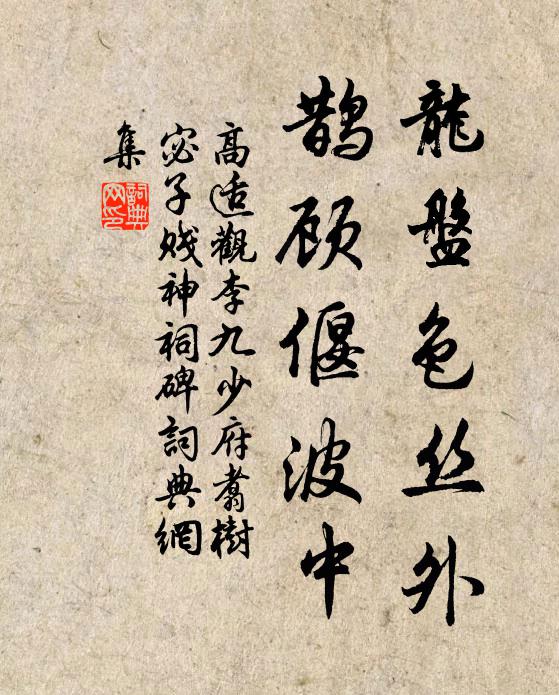 龍盤色丝外
鹊顾偃波中
高适觀李九少府翥樹
宓子贱神祠碑詞典網
集
詞典网印